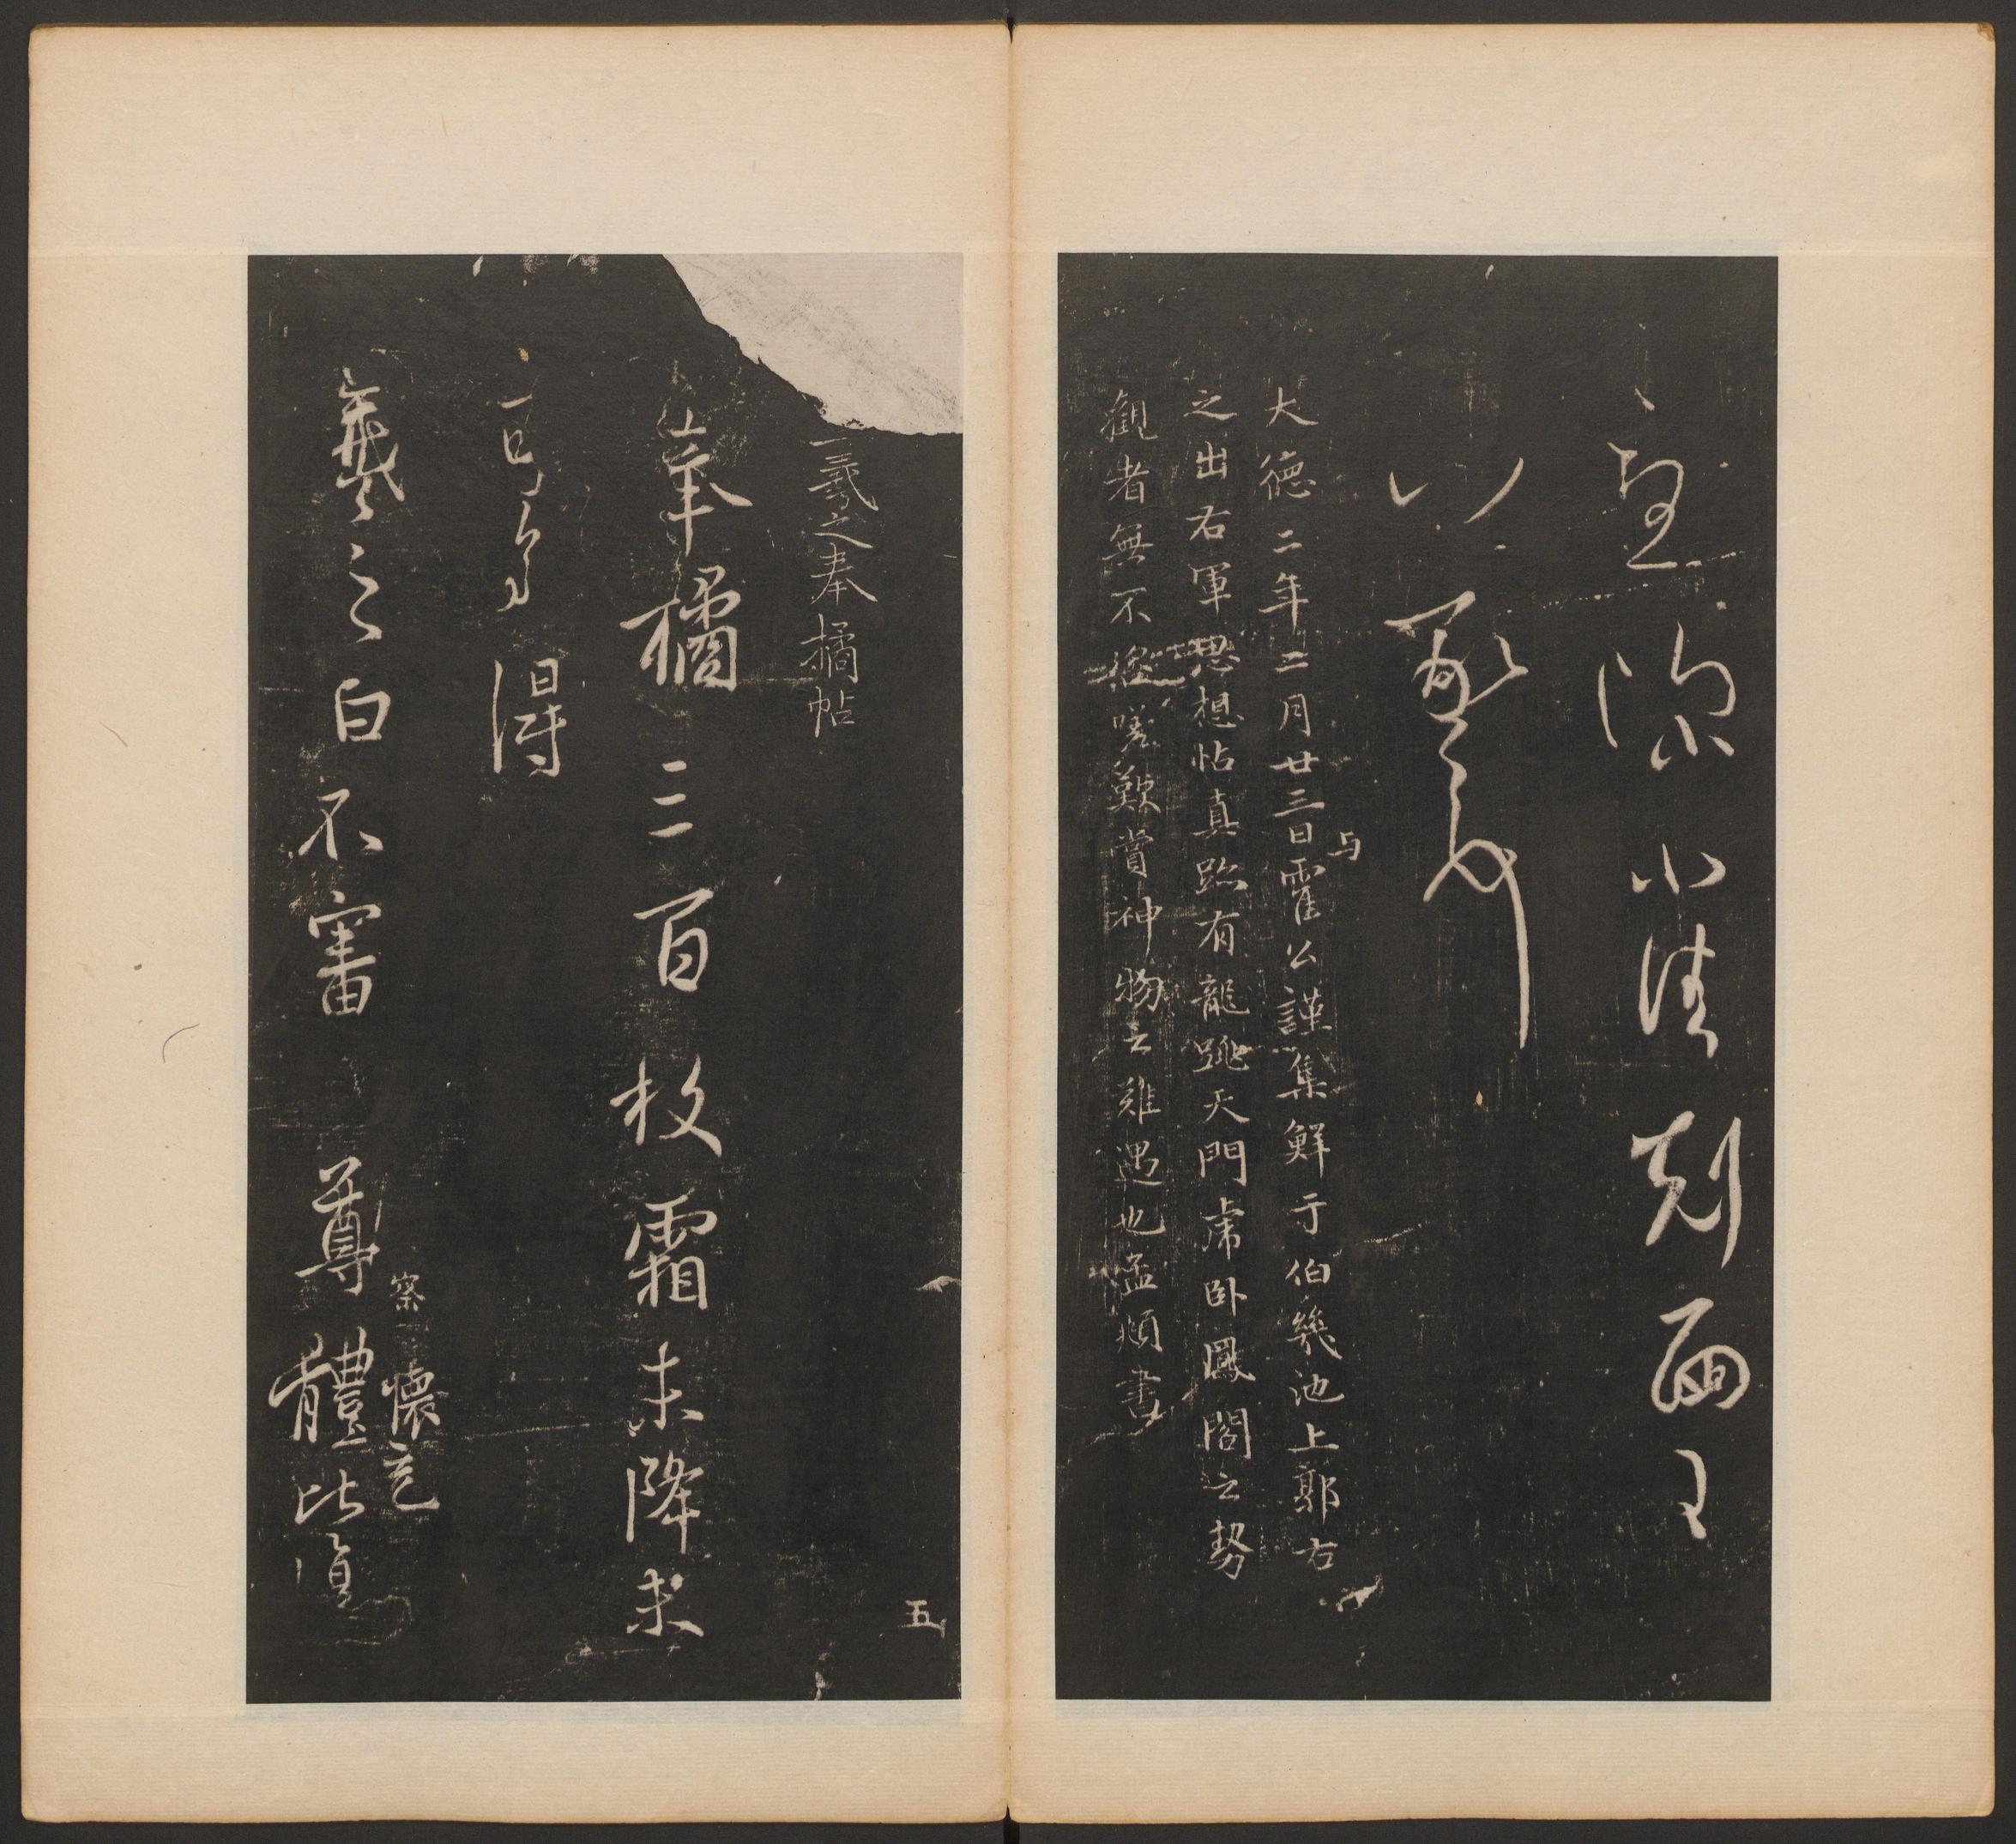 大德二年二月廿三日与霍公謹集鮮于伯幾池上郭右
之出右軍思想帖真跡有龍跳天門虎卧鳳閣之勢
觀者無不嗟歎賞神物之難遇也孟頫書
五
羲之奉橘帖
奉橘三百枚霜未降未
可多得
察懷充
羲之白不審尊體比復